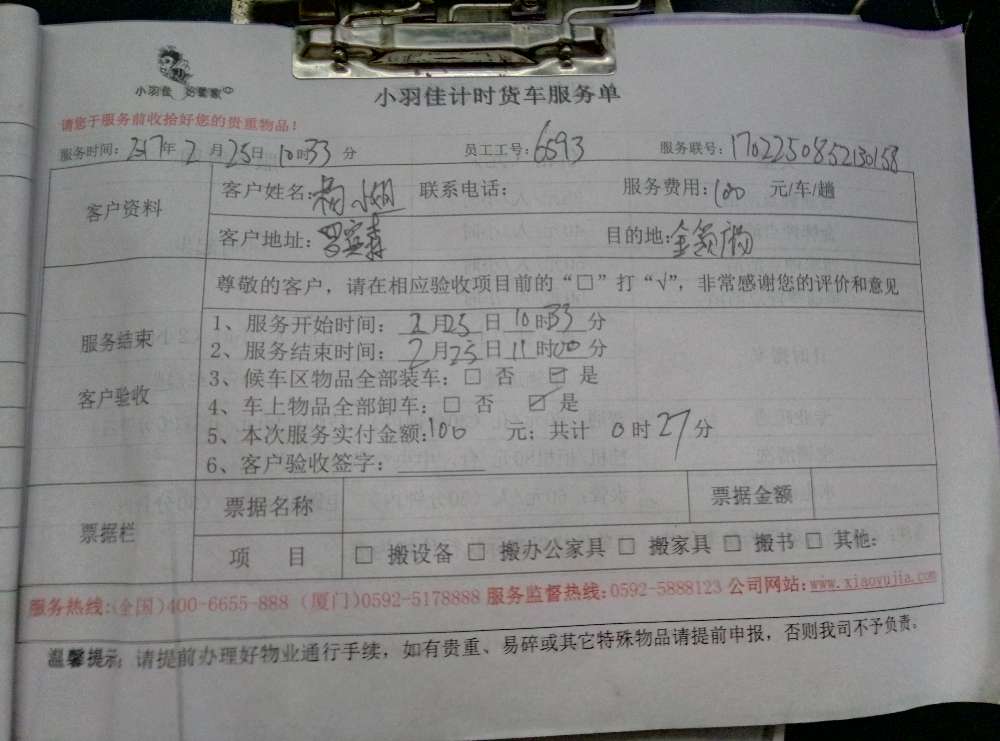 小羽佳 好管家
小羽佳计时货车服务单
请您于服务前收拾好您的贵重物品！
服务时间：2017年 2 月 25日 10时33 分 员工工号：6593 服务联号：1702250852130158
客户资料 客户姓名： 联系电话： 服务费用：100 元/车/趟
客户地址：罗宾森 目的地：金领广场
尊敬的客户，请在相应验收项目前的“□”打“√”，非常感谢您的评价和意见
服务结束
客户验收
1、服务开始时间：2月25日10时33分
2、服务结束时间：2月25日11时00分
3、候车区物品全部装车：□ 否 ☑ 是
4、车上物品全部卸车：□ 否 ☑ 是
5、本次服务实付金额：100 元；共计 0时27分
6、客户验收签字：
票据栏 票据名称 票据金额
项 目 □ 搬设备 □ 搬办公家具 □ 搬家具 □ 搬书 □ 其他：
服务热线：(全国)400-6655-888 (厦门)0592-5178888 服务监督热线：0592-5888123 公司网站：www.xiaoyujia.com
温馨提示：请提前办理好物业通行手续，如有贵重、易碎或其它特殊物品请提前申报，否则我司不予负责。